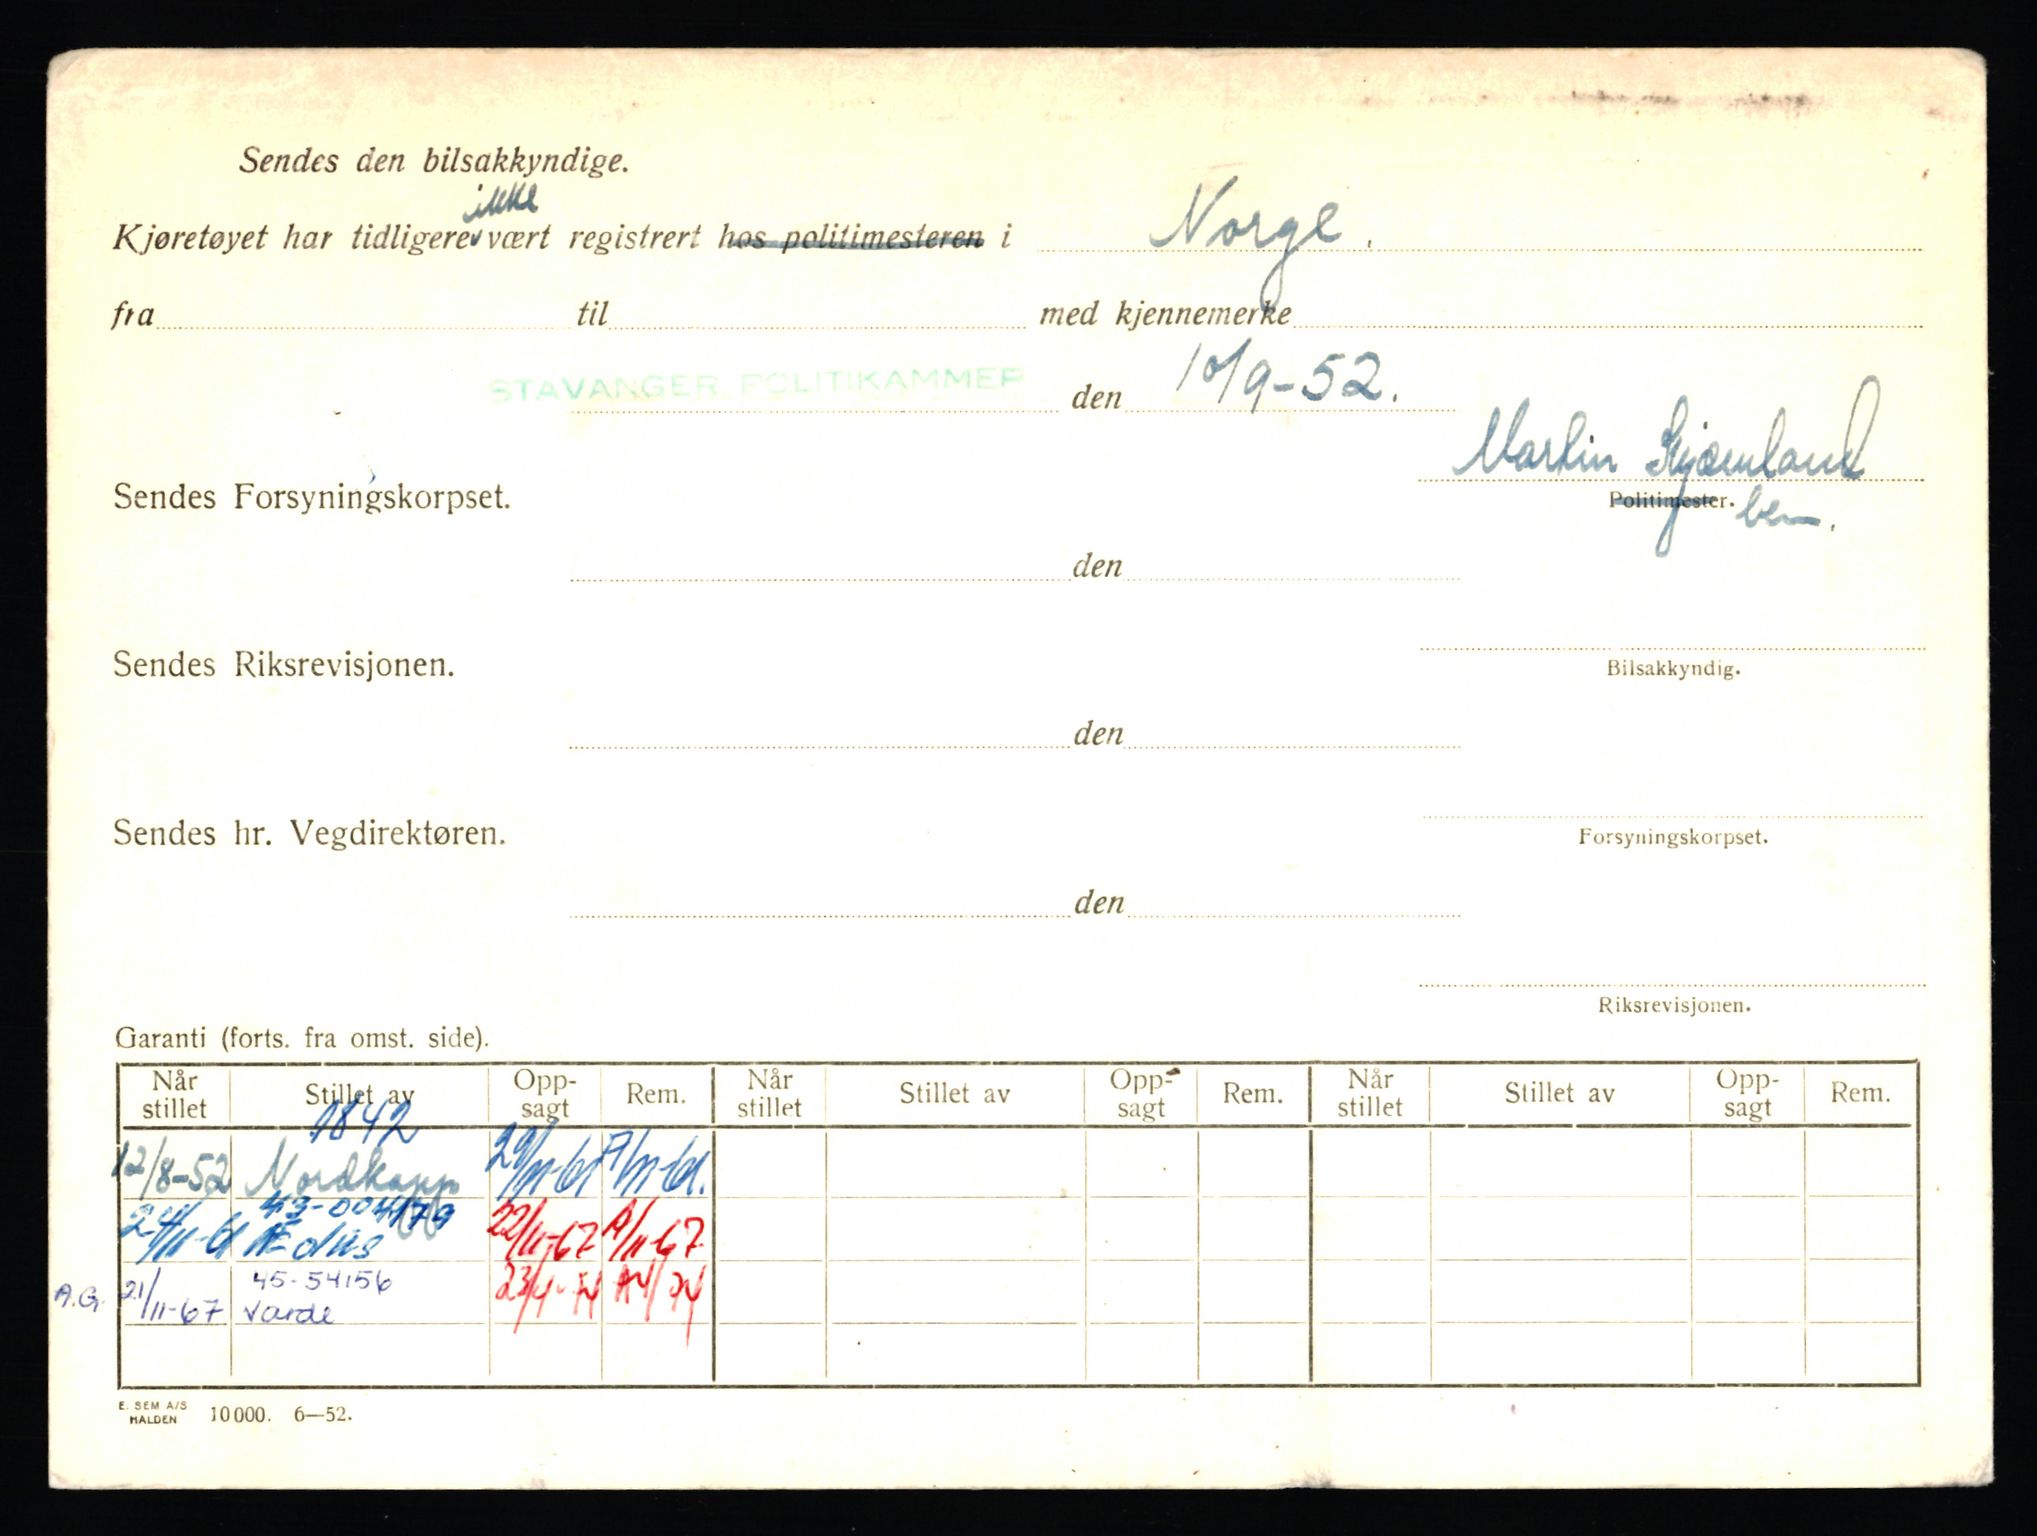 Sendes den bilsakkyndige.
ikke
Kjøretøyet har tidligere vært registrert hos politimesteren i Norge.
fra til med kjennemerke
STAVANGER POLITIKAMMER den 10/9-52.
Martin
Sendes Forsyningskorpset. Politimester.
den
Sendes Riksrevisjonen. Bilsakkyndig.
den
Sendes hr. Vegdirektøren. Forsyningskorpset.
den
Riksrevisjonen.
Garanti (forts. fra omst. side).
Når stillet Stillet av Opp-sagt Rem. Når stillet Stillet av Opp-sagt Rem. Når stillet Stillet av Opp-sagt Rem.
1842
12/8-52 Nordkapp 29/11-61 A/11-61.
24/11-61 22/11-67 A/11-67
45-54156
A.G. 21/11-67 Varde 23/4-74 A4/74
E. SEM A/S
HALDEN 10000. 6—52.